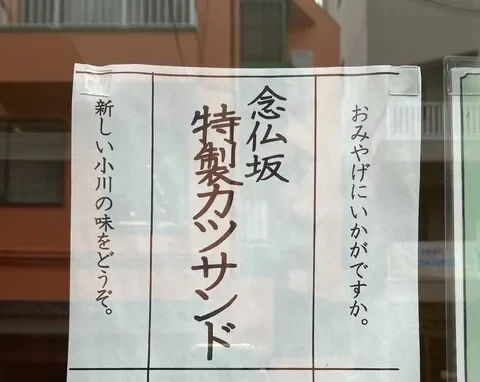 おみやげにいかがですか。
念仏坂
特製カツサンド
新しい小川の味をどうぞ。